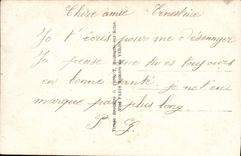 Chère amie Ernestine
Je t'écris pour me désennuyer
Je pense que tu es toujours
en bonne santé. Je not en
marque pas plus long
P J